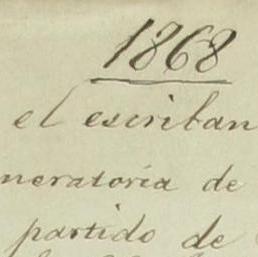 1868
el escriban
neratoria de
partido de